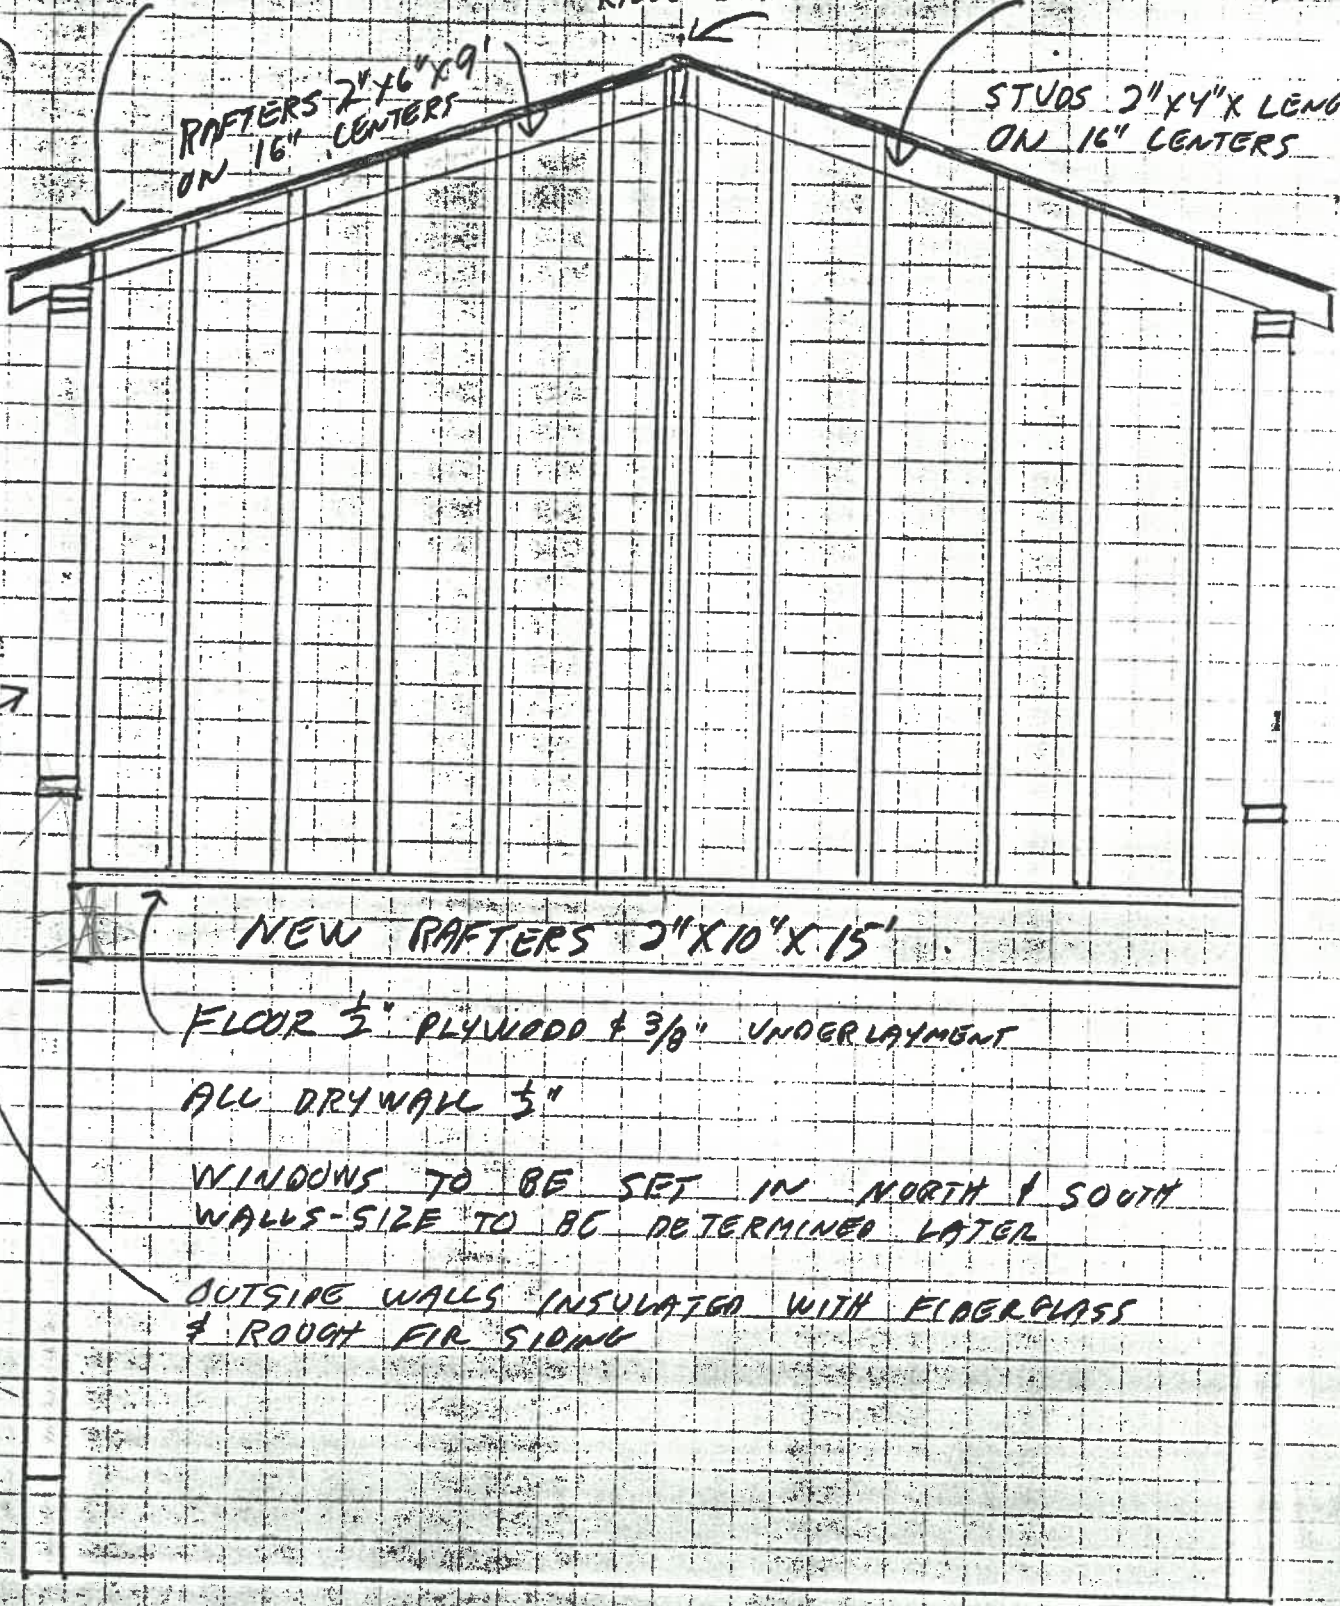 RAFTERS 2"X6"X9'
ON 16" CENTERS
STUDS 2"X4"X LENG
ON 16" CENTERS
NEW RAFTERS 2"X10"X15'
FLOOR ½" PLYWOOD & 3/8" UNDERLAYMENT
ALL DRYWALL ½"
WINDOWS TO BE SET IN NORTH & SOUTH
WALLS-SIZE TO BE DETERMINED LATER
OUTSIDE WALLS INSULATED WITH FIBERGLASS
& ROUGH FIR SIDING